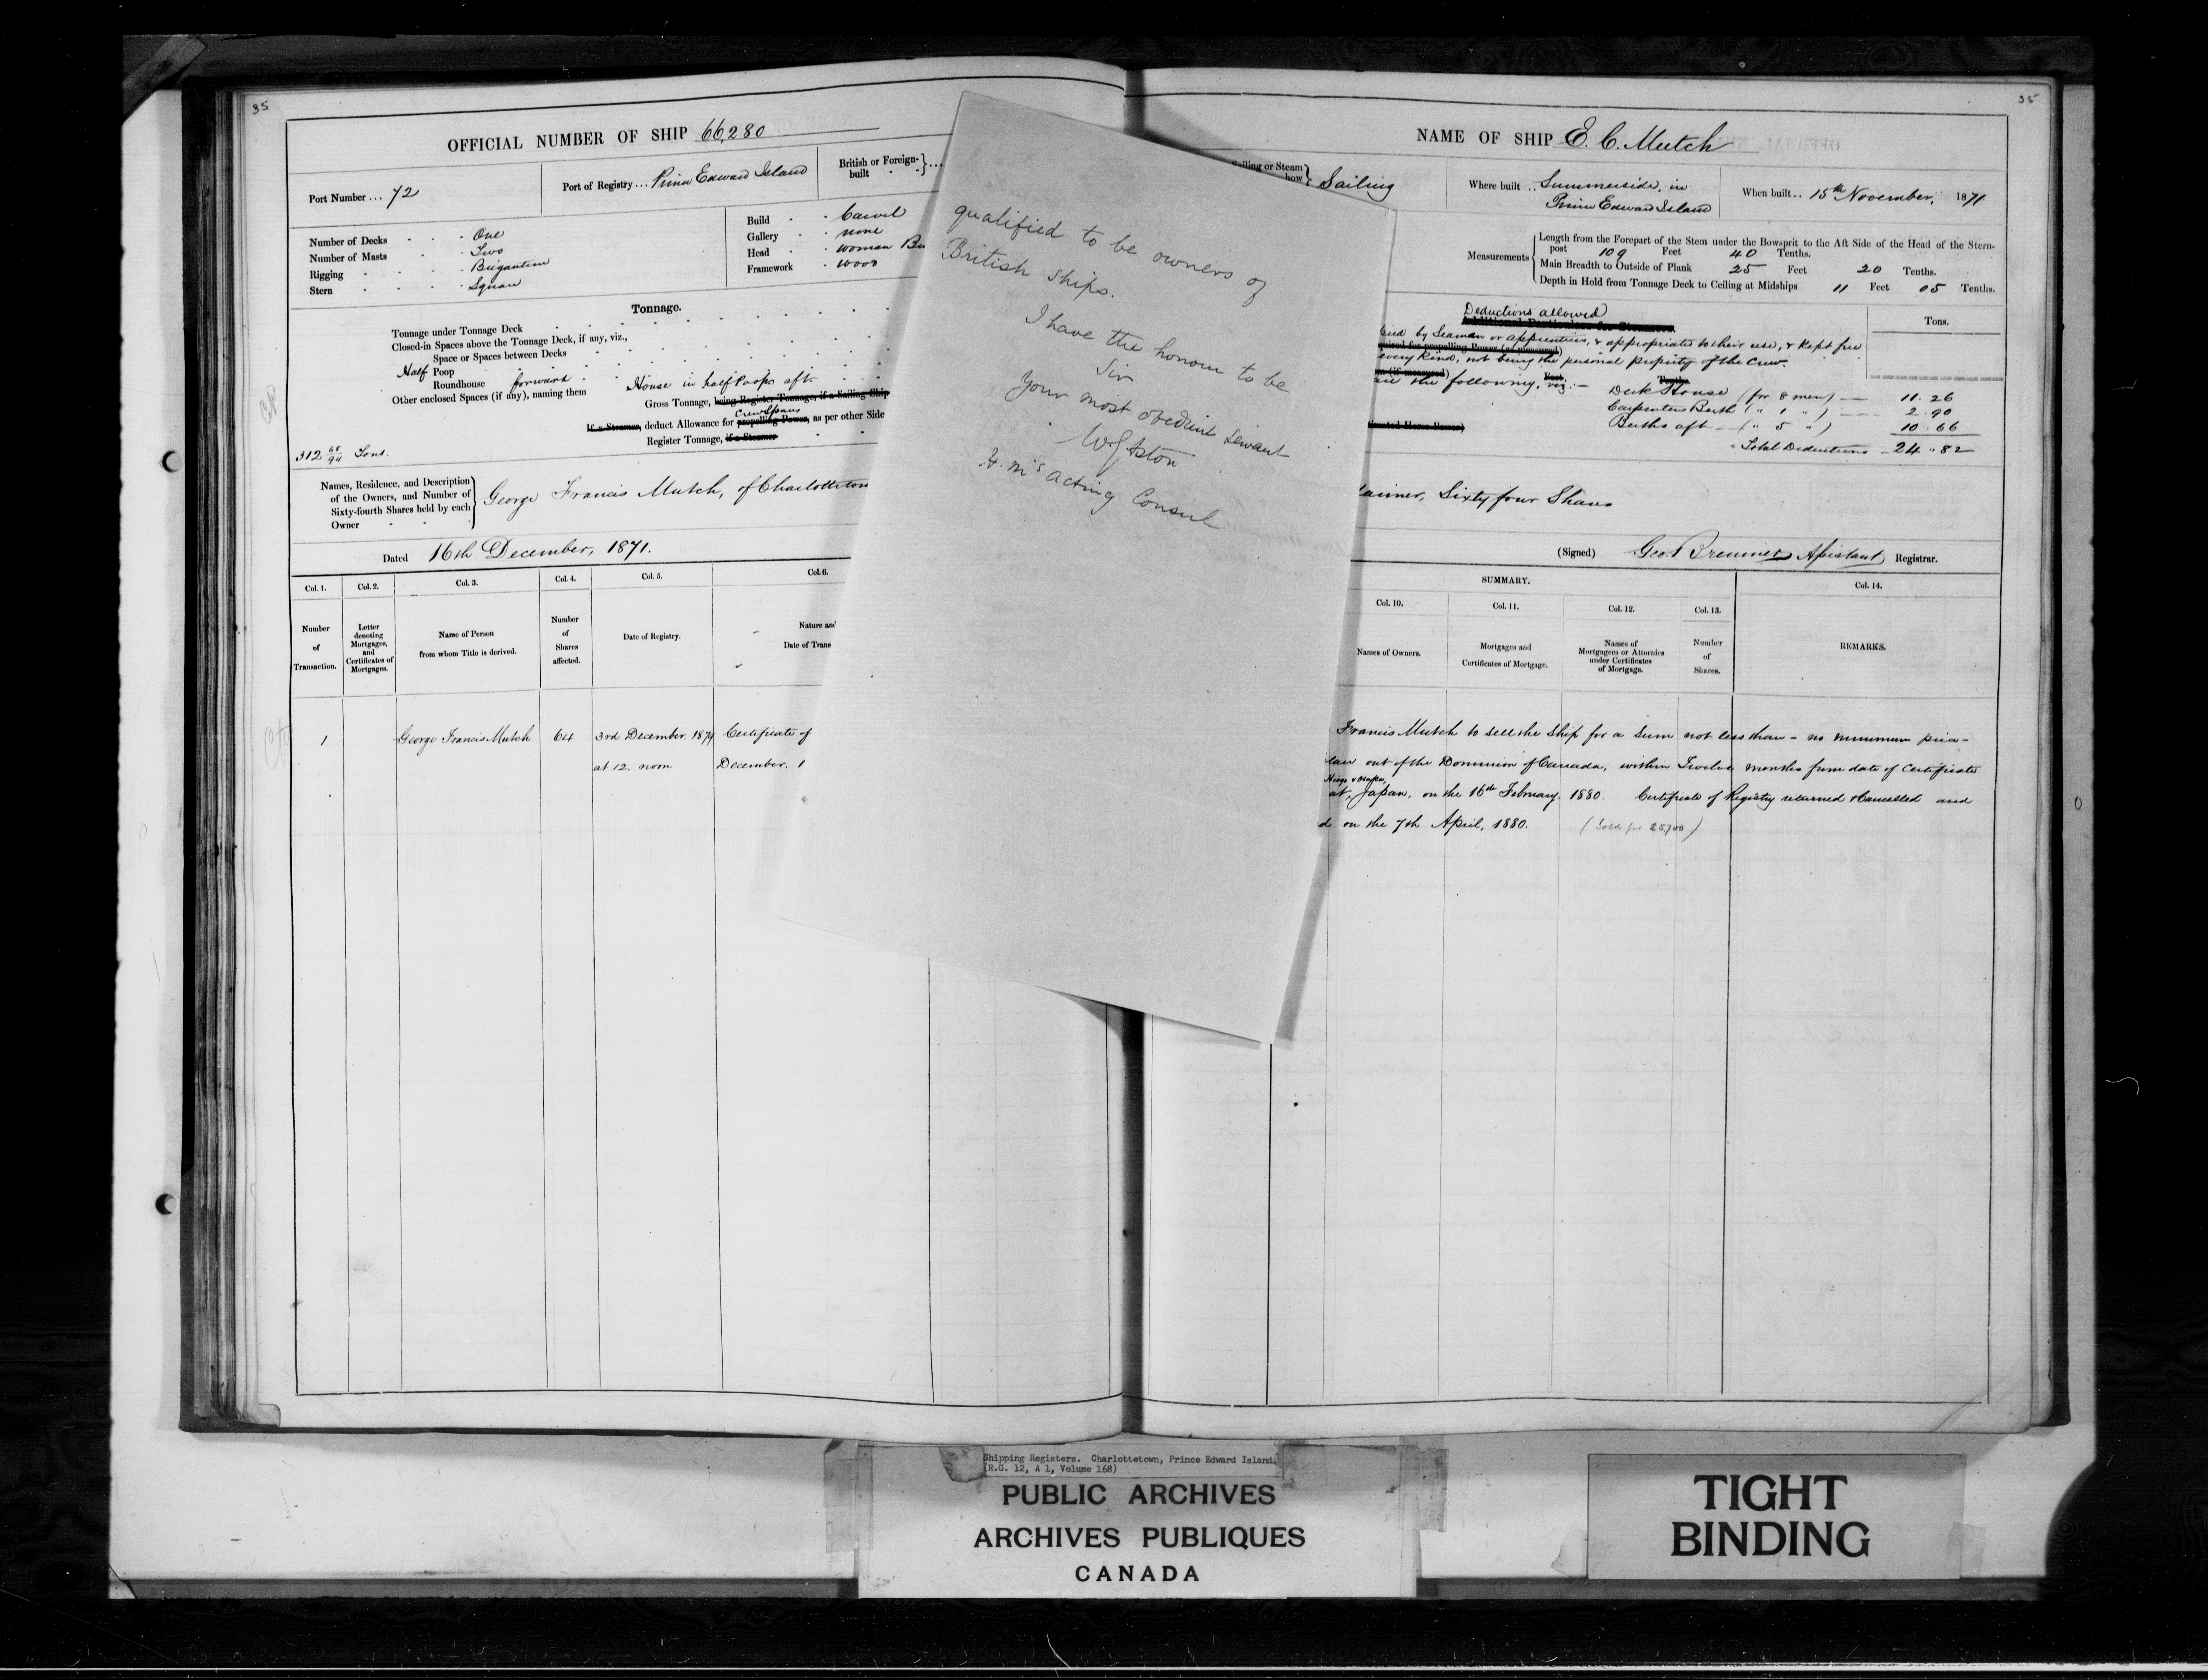 35
OFFICIAL NUMBER OF SHIP 66,280
Port Number ... 72
Port of Registry ... Prince Edward Island
British or Foreign-built
Number of Decks One
Number of Masts Two
Rigging Brigantine
Stern Square
Build Carvel
Gallery none
Head woman Bu
Framework wood
Tonnage.
Tonnage under Tonnage Deck
Closed-in Spaces above the Tonnage Deck, if any, viz.,
Space or Spaces between Decks
Half Poop
Roundhouse forward
Other enclosed Spaces (if any), naming them House in half Poops aft.
Gross Tonnage, being Register Tonnage, if a Sailing Ship
Crew Spaces
If a Steamer, deduct Allowance for propelling Power, as per other Side
Register Tonnage, if a Steamer
312 68/94 Tons.
Names, Residence, and Description
of the Owners, and Number of
Sixty-fourth Shares held by each
Owner
George Francis Mutch, of Charlottetown
Dated 16th December, 1871.
Col. 1. Col. 2. Col. 3. Col. 4. Col. 5. Col. 6.
Number of Transaction.
Letter denoting Mortgages, and Certificates of Mortgages.
Name of Person from whom Title is derived.
Number of Shares affected.
Date of Registry.
Nature and
Date of Trans
1 George Francis Mutch 64 3rd December. 1879 Certificate of
at 12. noon December. 1
qualified to be owners of
British ships.
I have the honour to be
Sir
Your most obedient servant
W G Aston
H. M's acting Consul
35
NAME OF SHIP E. C. Mutch
Sailing or Steam
how
Sailing
Where built ... Summerside, in
Prince Edward Island
When built .. 15th November, 1871
Measurements
Length from the Forepart of the Stem under the Bowsprit to the Aft Side of the Head of the Stern-
post 109 Feet 40 Tenths.
Main Breadth to Outside of Plank 25 Feet 20 Tenths.
Depth in Hold from Tonnage Deck to Ceiling at Midships 11 Feet 05 Tenths.
Deductions allowed
Additional Particulars for Steamers.
Tons.
by Seamen or apprentices, & appropriated to their use, & kept free
required for propelling Power (as measured)
every kind, not being the personal property of the Crew.
are the following, viz:—
Deck House (for 8 men) — 11.26
Carpenters Berth ( " 1 " ) — 2.90
Berths aft — ( " 5 " ) 10.66
Total Deductions — 24.82
Sixty four Shares
(Signed) Geo. Bremner Assistant Registrar.
SUMMARY.
Col. 10. Col. 11. Col. 12. Col. 13. Col. 14.
Names of Owners.
Mortgages and Certificates of Mortgage.
Names of Mortgagees or Attornies under Certificates of Mortgage.
Number of Shares.
REMARKS.
Francis Mutch to sell the Ship for a Sum not less than - no minimum price -
out of the Dominion of Canada, within Twelve months from date of Certificate
Hiogo & Osaka,
at, Japan, on the 16th February. 1880. Certificate of Registry returned & Cancelled and
d on the 7th April, 1880. (Sold for $5700)
Shipping Registers. Charlottetown, Prince Edward Island.
(R.G. 12, A 1, Volume 168)
PUBLIC ARCHIVES
ARCHIVES PUBLIQUES
CANADA
TIGHT
BINDING